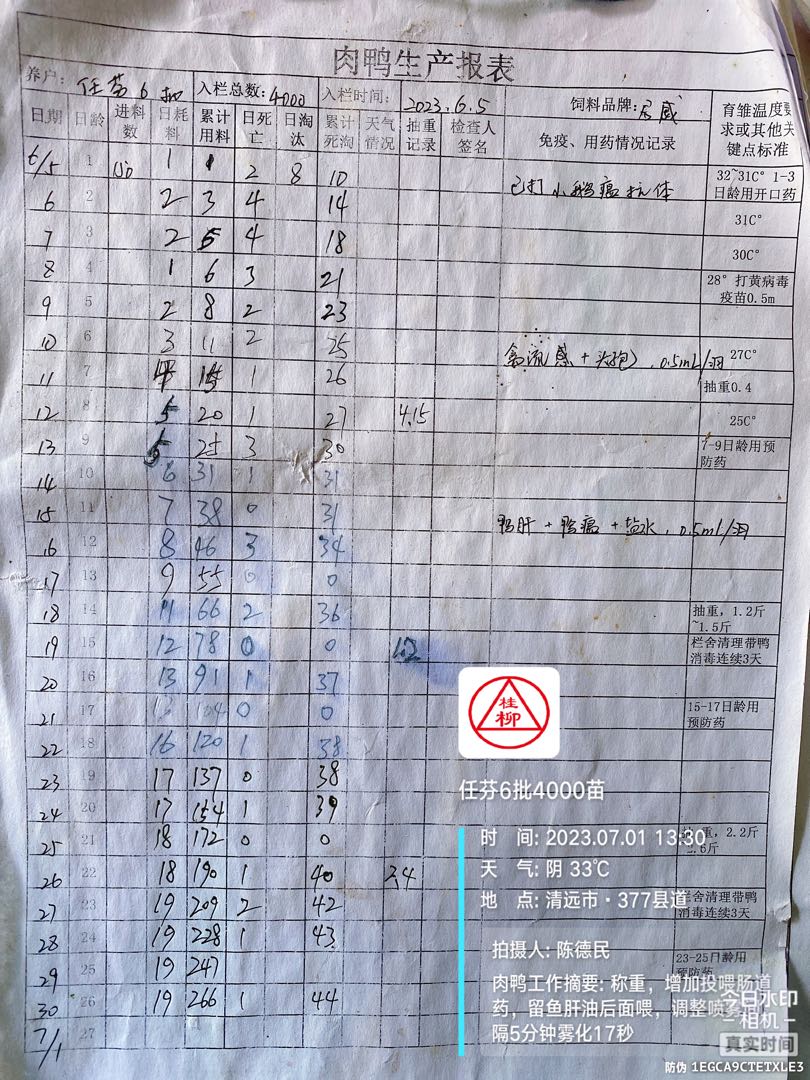 肉鸭生产报表
养户: 任芬6批 入栏总数: 4000 入栏时间: 2023.6.5 饲料品牌:
日期 日龄 进料数 日耗料 累计用料 日死亡 日淘汰 累计死淘 天气情况 抽重记录 检查人签名 免疫、用药情况记录 育雏温度要求或其他关键点标准
6/5 1 1 1 2 8 10 已打小鹅瘟抗体 32~31C° 1-3日龄用开口药
6 2 2 3 4 14 31C°
7 3 2 5 4 18 30C°
8 4 1 6 3 21 28° 打黄病毒疫苗0.5m
9 5 2 8 2 23
10 6 3 11 2 25 禽流感+ 0.5mL/羽 27C°
11 7 4 15 1 26 抽重0.4
12 8 5 20 1 27 4.15 25C°
13 9 5 25 3 30 7-9日龄用预防药
14 10 6 31 1 31
15 11 7 38 0 31 鸭肝+鸭瘟+盐水,0.5ml/羽
16 12 8 46 3 34
17 13 9 55 0 0
18 14 11 66 2 36 抽重，1.2斤~1.5斤
19 15 12 78 0 0 1.2 栏舍清理带鸭消毒连续3天
20 16 13 91 1 37
21 17 104 0 0 15-17日龄用预防药
22 18 16 120 1 38
23 19 17 137 0 38
24 20 17 154 1 39
25 21 18 172 0 0 重，2.2斤 6斤
26 22 18 190 1 40 2.4
27 23 19 209 2 42 栏舍清理带鸭消毒连续3天
28 24 19 228 1 43
29 25 19 247 23-25日龄用预防药
30 26 19 266 1 44
7/1 27
桂柳
任芬6批4000苗
时 间: 2023.07.01 13:30
天 气: 阴 33℃
地 点: 清远市·377县道
拍摄人: 陈德民
肉鸭工作摘要: 称重，增加投喂肠道
药，留鱼肝油后面喂，调整喷雾
隔5分钟雾化17秒
今日水印
相机
真实时间
防伪 1EGCA9CTETXLE3